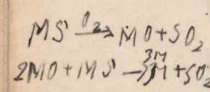 MS —O₂→ MO + SO₂
2MO + MS → 3M + SO₂